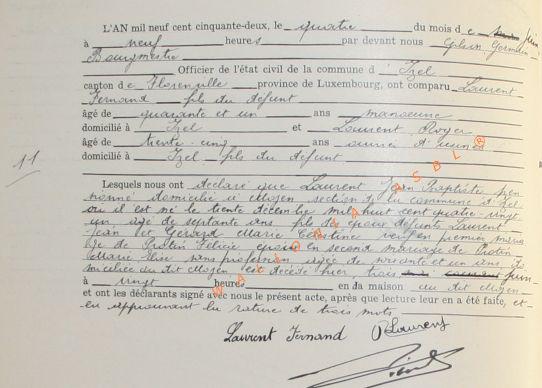 L'AN mil neuf cent cinquante-deux, le quatre du mois de juin
à neuf heures par devant nous Germain
Bourgmestre
Officier de l'état civil de la commune d'Izel
canton de Florenville province de Luxembourg, ont comparu Laurent
Fernand fils du défunt
âgé de quarante et un ans manoeuvre
domicilié à Izel et Laurent Roger
âgé de trente-cinq ans ouvrier d'usines
domicilié à Izel fils du défunt
11
Lesquels nous ont déclaré que Laurent Jean Baptiste pen
sionné domicilié à Moyen section de la commune d'Izel
où il est né le trente décembre mil huit cent quatre-vingt
un âgé de septante ans fils des époux défunts Laurent
Jean et Gérard Marie Célestine veuf en premier maria
ge de Protin Félicie époux en second mariage de Protin
Marie Elise sans profession âgée de soixante et un ans do
micilée au dit Moyen est décédé hier, trois juin
à vingt heures en sa maison au dit Moyen
et ont les déclarants signé avec nous le présent acte, après que lecture leur en a été faite, et
en approuvant la rature de trois mots
Laurent Fernand R Laurent
WALLONIA ASBL ®